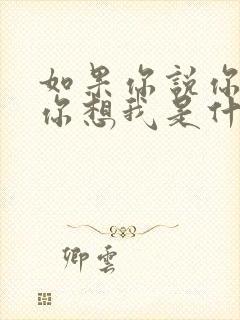 如果你說你
你想我是什
卿雲